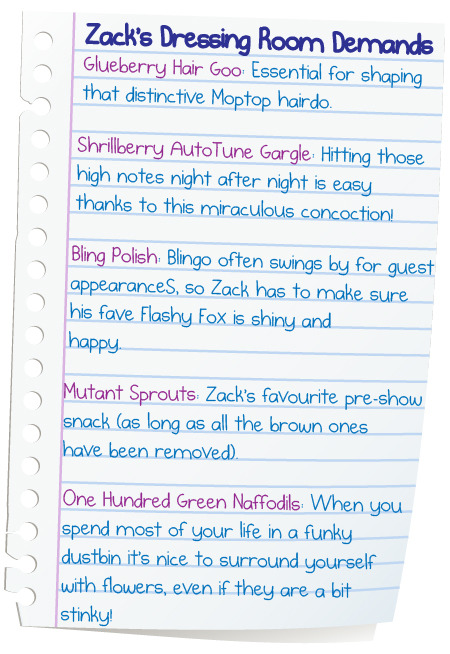 Zack's Dressing Room Demands
Glueberry Hair Goo: Essential for shaping
that distinctive Moptop hairdo.
Shrillberry AutoTune Gargle: Hitting those
high notes night after night is easy
thanks to this miraculous concoction!
Bling Polish: Blingo often swings by for guest
appearanceS, so Zack has to make sure
his fave Flashy Fox is shiny and
happy.
Mutant Sprouts: Zack's favourite pre-show
snack (as long as all the brown ones
have been removed).
One Hundred Green Naffodils: When you
spend most of your life in a funky
dustbin it's nice to surround yourself
with flowers, even if they are a bit
stinky!